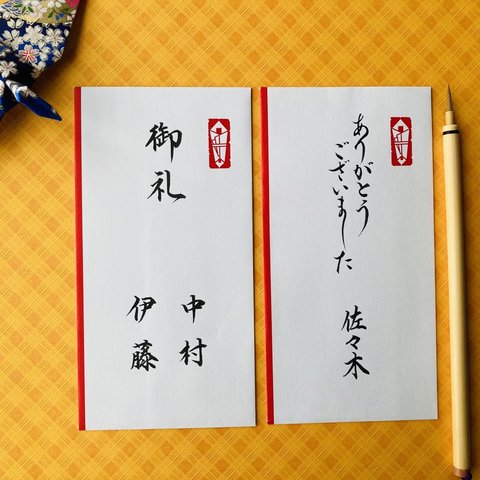 御礼
中村
伊藤
ありがとう
ございました
佐々木